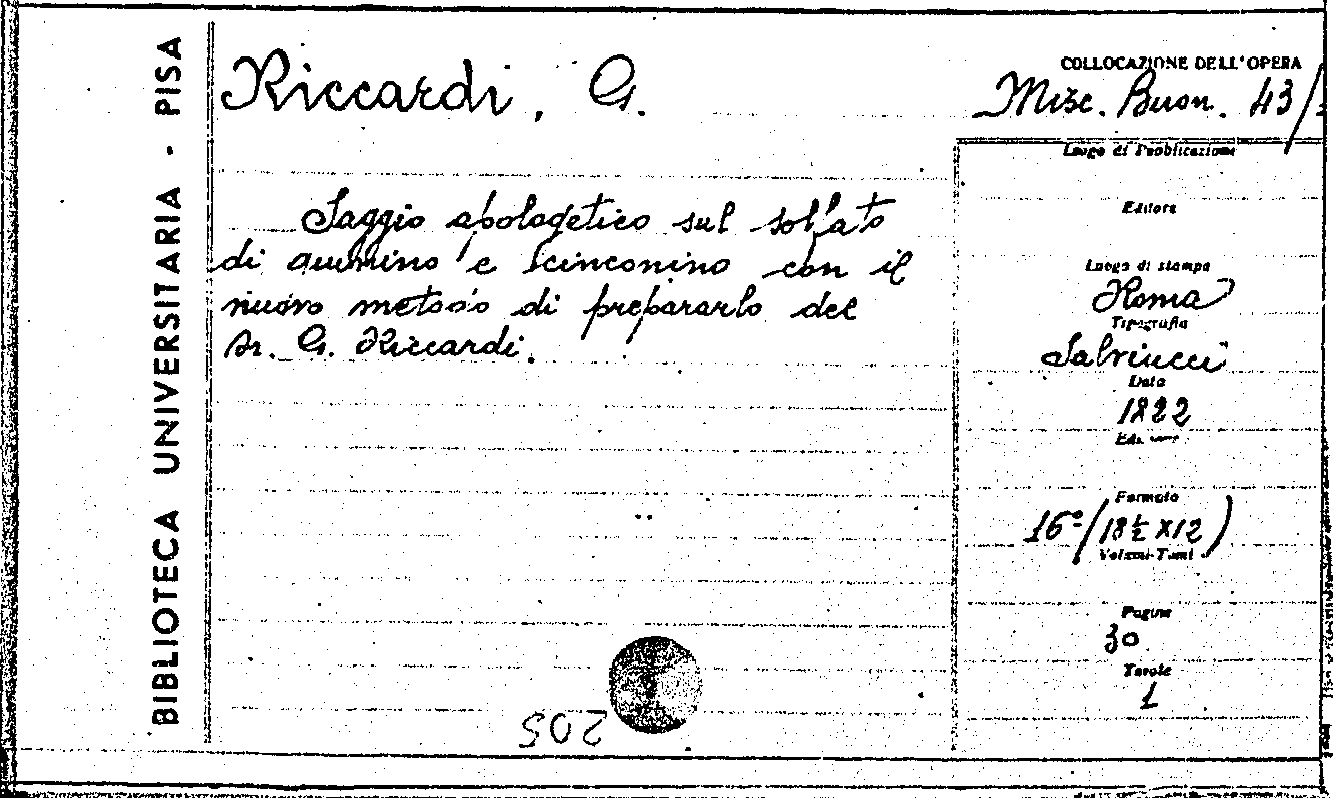 BIBLIOTECA UNIVERSITARIA - PISA
Riccardi, G.
Saggio apologetico sul solfato
di e cinconino con il
nuovo metodo di prepararlo del
Sr. G. Riccardi.
205
COLLOCAZIONE DELL'OPERA
Misc. Buon. 43/
Luogo di Pubblicazione
Editore
Luogo di stampa
Roma
Tipografia
Salviucci
Data
1822
Formato
16º/(18½ x12)
Volumi-Tomi
Pagine
30
Tavole
1